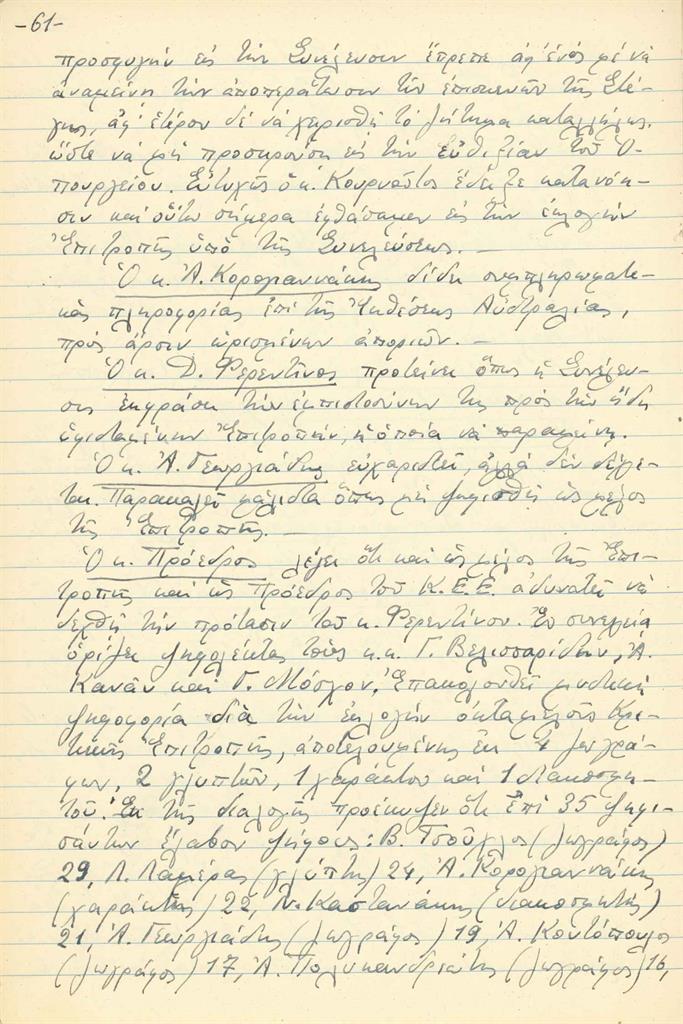 -61-
προσφυγὴν εἰς τὴν Συνέλευσιν ἔπρεπε ἀφ' ἑνὸς μὲ νὰ
ἀναμείνῃ τὴν ἀποπεράτωσιν τῶν ἐπισκευῶν τῆς Στέ-
γης, ἀφ' ἑτέρου δὲ νὰ χειρισθῇ τὸ ζήτημα καταλλήλως,
ὥστε νὰ μὴ προσκρούσῃ εἰς τὴν εὐθιξίαν τοῦ Ὑ-
πουργείου. Εὐτυχῶς ὁ κ. Κουρνοῦτος ἔδειξε κατανόη-
σιν καὶ οὕτω σήμερα ἐφθάσαμεν εἰς τὴν ἐκλογὴν
Ἐπιτροπῆς ὑπὸ τῆς Συνελεύσεως. —
Ὁ κ. Ἀ. Κορογιαννάκης δίδει συμπληρωματι-
κὰς πληροφορίας ἐπὶ τῆς Ἐκθέσεως Αὐστραλίας,
πρὸς ἄρσιν ὡρισμένων ἀποριῶν. —
Ὁ κ. Δ. Φερεντῖνος προτείνει ὅπως ἡ Συνέλευ-
σις ἐκφράσῃ τὴν ἐμπιστοσύνην της πρὸς τὴν ἤδη
ὑφισταμένην Ἐπιτροπήν, ἡ ὁποία νὰ παραμείνῃ.
Ὁ κ. Ἀ. Γεωργιάδης εὐχαριστεῖ, ἀλλὰ δὲν δέχε-
ται. Παρακαλεῖ μάλιστα ὅπως μὴ ψηφισθῇ ὡς μέλος
τῆς Ἐπιτροπῆς. —
Ὁ κ. Πρόεδρος λέγει ὅτι καὶ ὡς μέλος τῆς Ἐπι-
τροπῆς καὶ ὡς Πρόεδρος τοῦ Κ.Ε.Ε. ἀδυνατεῖ νὰ
δεχθῇ τὴν πρότασιν τοῦ κ. Φερεντίνου. Ἐν συνεχείᾳ
ὁρίζει ψηφολέκτας τοὺς κ.κ. Γ. Βελισσαρίδην, Ἀ.
Κανᾶν καὶ Γ. Μόσχον. Ἐπακολουθεῖ μυστικὴ
ψηφοφορία διὰ τὴν ἐκλογὴν ὀκταμελοῦς Κρι-
τικῆς Ἐπιτροπῆς, ἀποτελουμένης ἐκ 4 ζωγρά-
φων, 2 γλυπτῶν, 1 χαράκτου καὶ 1 διακοσμη-
τοῦ. Ἐκ τῆς διαλογῆς προέκυψεν ὅτι ἐπὶ 35 ψηφι-
σάντων ἔλαβον ψήφους: Β. Τσοῦχλος (ζωγράφος)
29, Λ. Λαμέρας (γλύπτης) 24, Ἀ. Κορογιαννάκης
(χαράκτης) 22, Ν. Καστανάκης (διακοσμητής)
21, Ἀ. Γεωργιάδης (ζωγράφος) 19, Ἀ. Κοντόπουλος
(ζωγράφος) 17, Ἀ. Πολυκανδριώτης (ζωγράφος) 16,